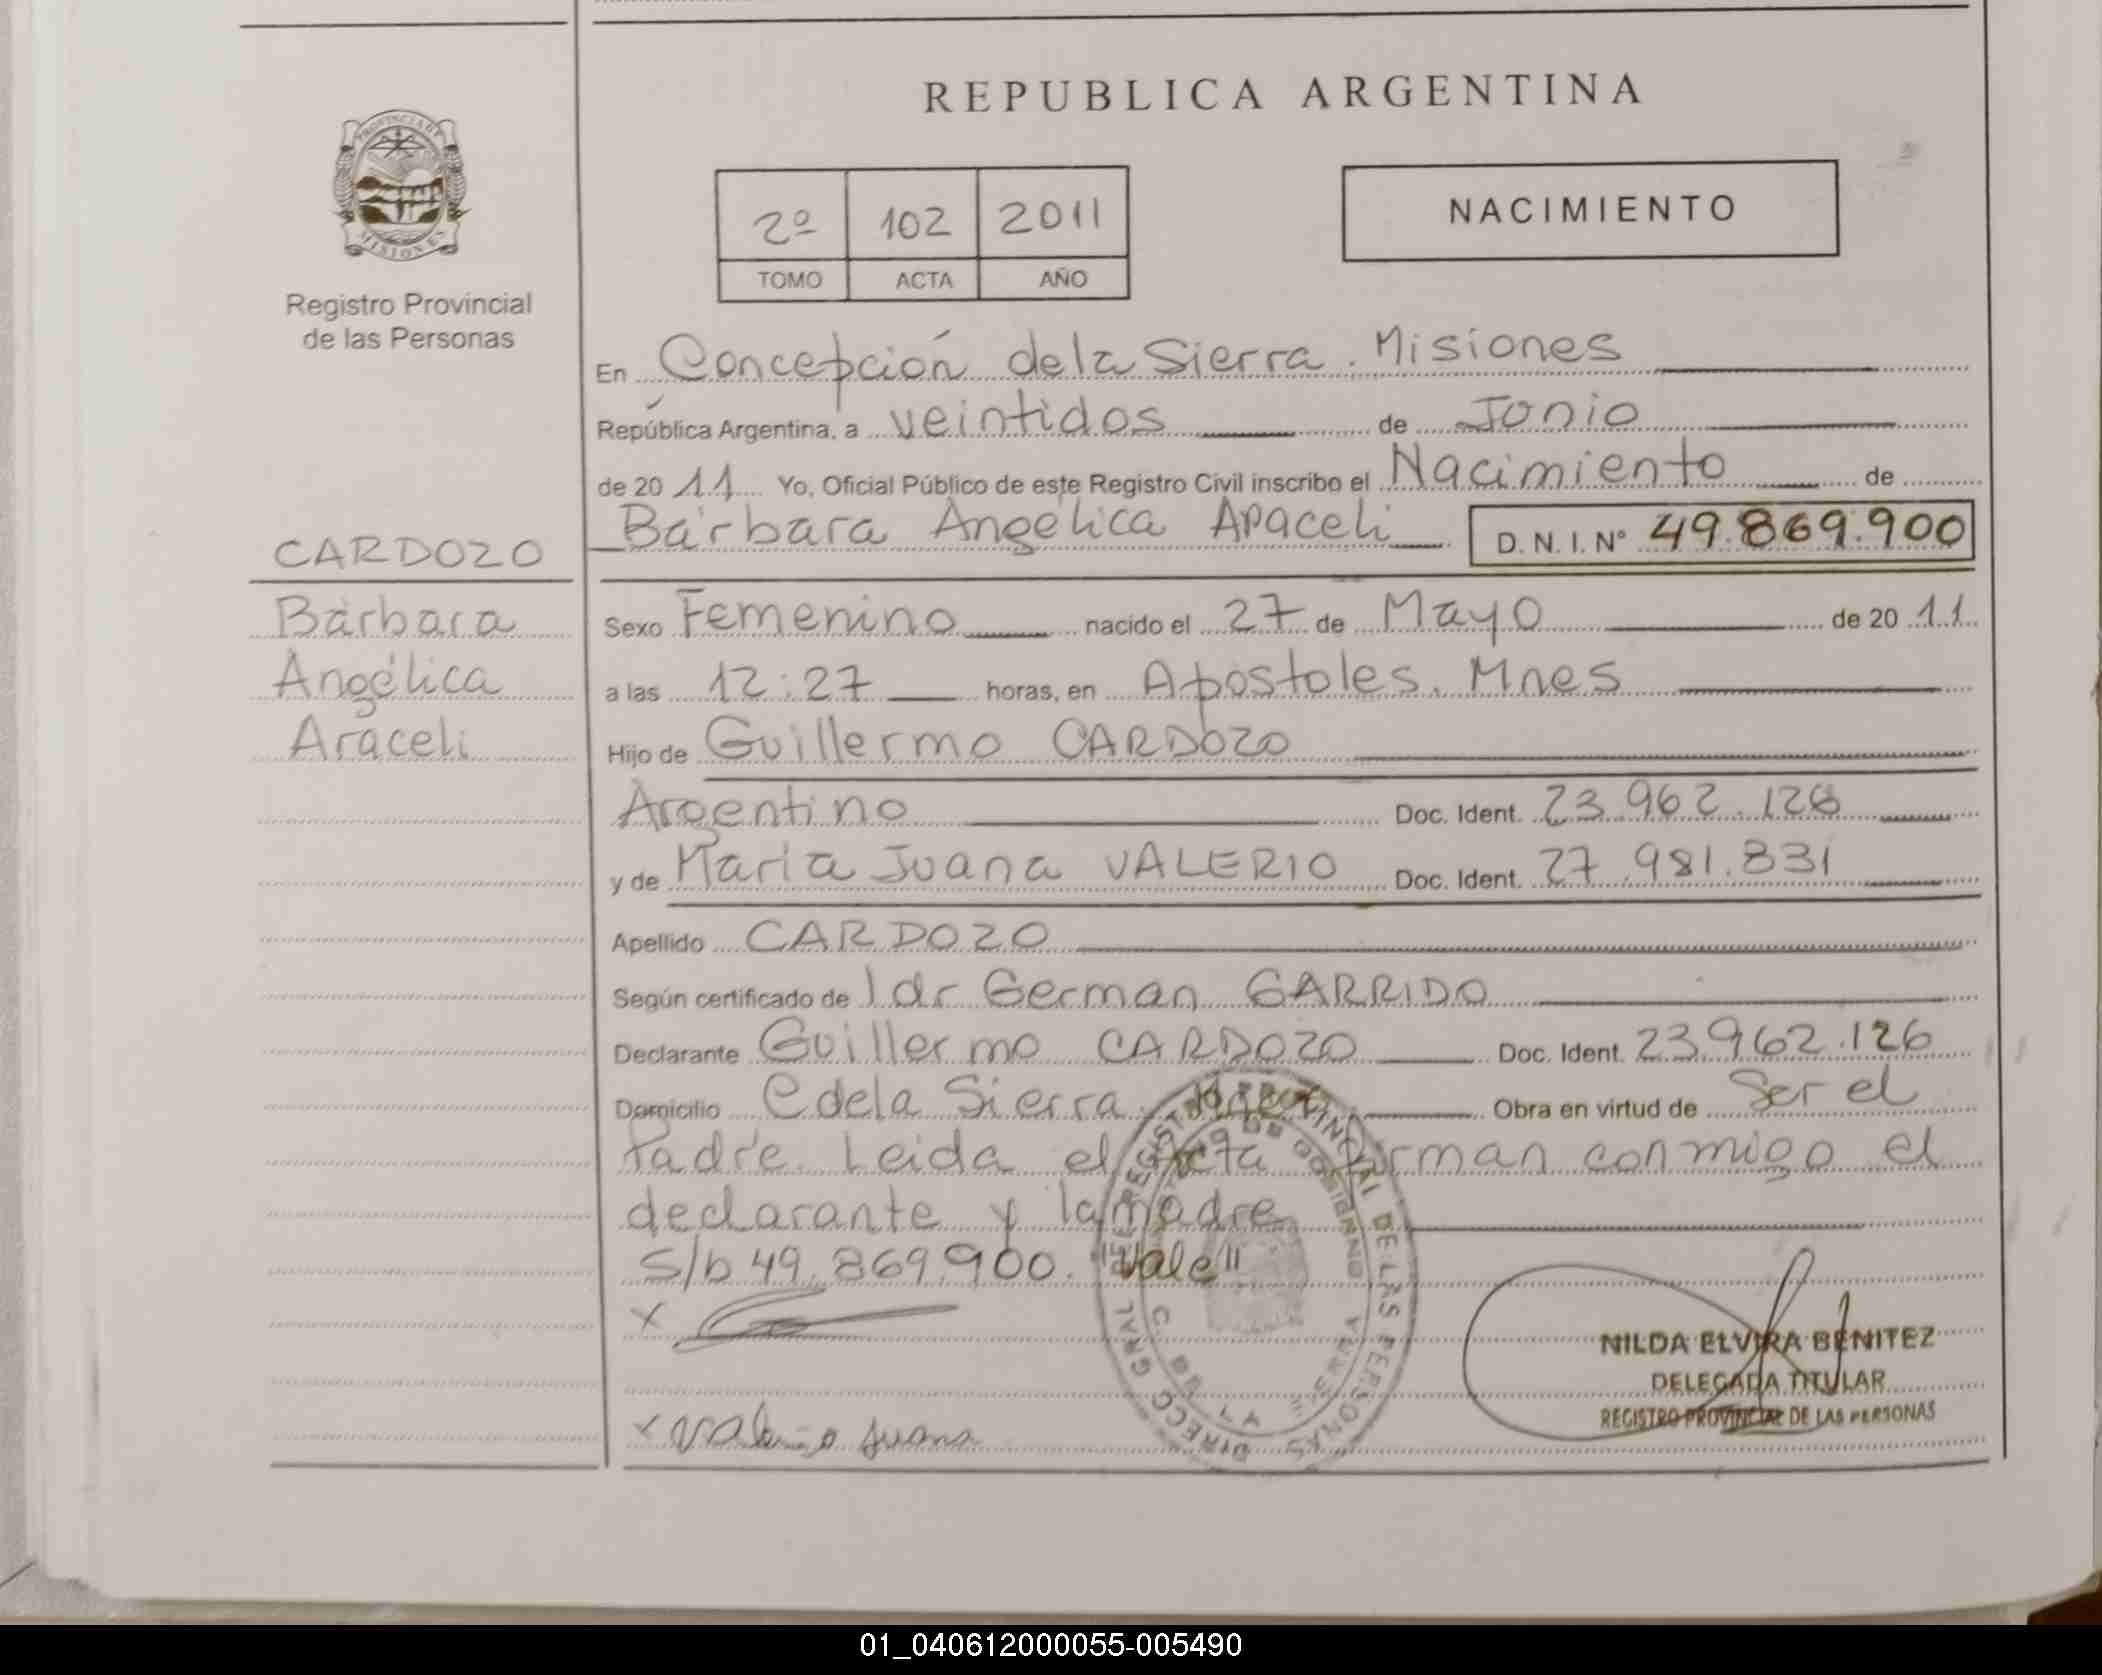 REPUBLICA ARGENTINA
PROVINCIA DE
MISIONES
Registro Provincial
de las Personas
2º 102 2011
TOMO ACTA AÑO
NACIMIENTO
En Concepción dela Sierra. Misiones
República Argentina, a veintidos de Junio
de 20 11 Yo, Oficial Público de este Registro Civil inscribo el Nacimiento de
Bárbara Angélica Araceli D. N. I. Nº 49.869.900
CARDOZO
Bárbara
Angélica
Araceli
Sexo Femenino nacido el 27 de Mayo de 20 11
a las 12:27 horas, en Apostoles. Mnes
Hijo de Guillermo CARDOZO
Argentino Doc. Ident. 23.962.126
y de Maria Juana VALERIO Doc. Ident. 27.981.831
Apellido CARDOZO
Según certificado de l dr German GARRIDO
Declarante Guillermo CARDOZO Doc. Ident. 23.962.126
Domicilio C dela Sierra Obra en virtud de Ser el
Padre. Leida el Acta firman conmigo el
declarante y la madre
S/b 49.869.900. "Vale"
X
x Valerio Juana
DIRECC GRAL DEL REGIST PROVINCIAL DE LAS PERSONAS
NILDA ELVIRA BENITEZ
DELEGADA TITULAR
REGISTRO PROVINCIAL DE LAS PERSONAS
01_040612000055-005490